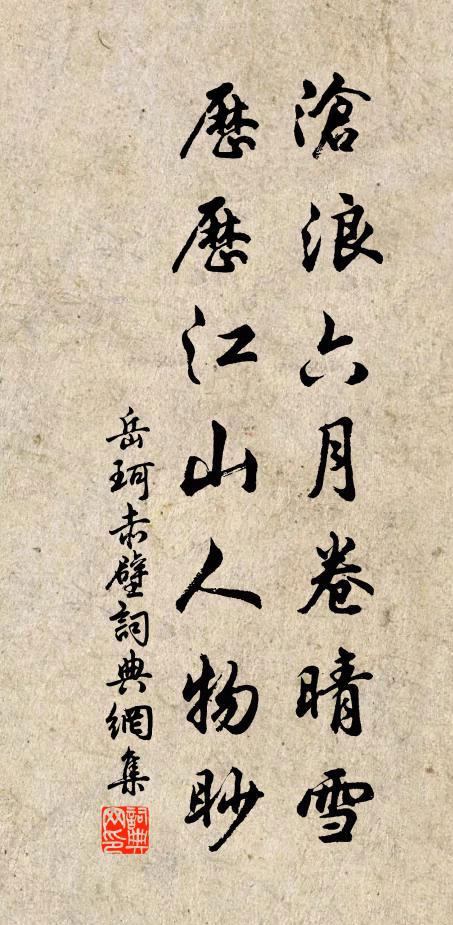 滄浪六月卷晴雪
歷歷江山人物眇
岳珂赤壁詞典網集
詞典網印